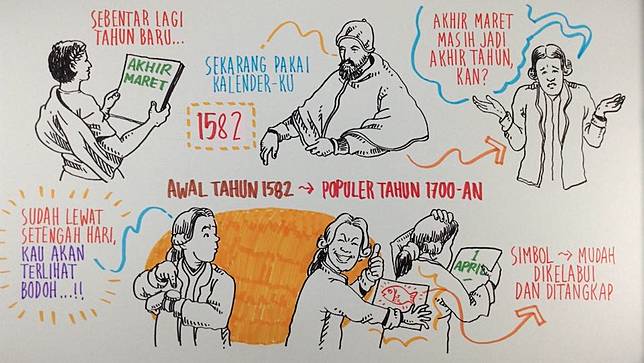 SEBENTAR LAGI
TAHUN BARU...
AKHIR
MARET
SEKARANG PAKAI
KALENDER-KU
1582
AKHIR MARET
MASIH JADI
AKHIR TAHUN,
KAN?
AWAL TAHUN 1582 → POPULER TAHUN 1700-AN
SUDAH LEWAT
SETENGAH HARI,
KAU AKAN
TERLIHAT
BODOH...!!
1
APRIL
SIMBOL → MUDAH
DIKELABUI
DAN DITANGKAP